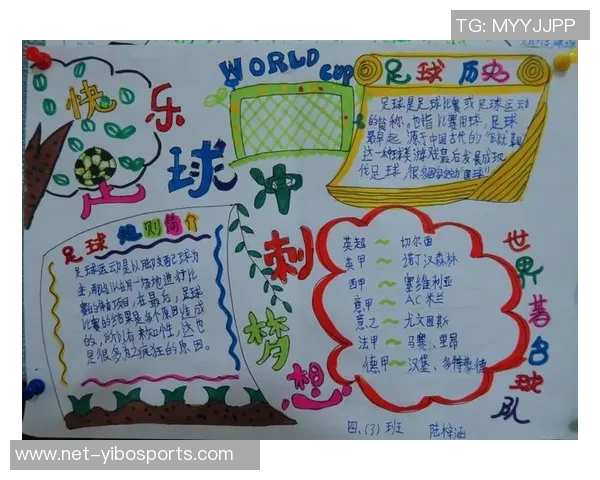 TG: MYYJJPP
WORLD CUP
快乐足球
冲刺梦想
足球 历史
足球是足球比赛或足球运动
的简称。也指比赛用球,足球
最早起源于中国古代的
这一种球类游戏最后发展成现
代足球,很多
足球 规则简介
足球运动是以脚支配球为
主,
足球
比赛的结果是多个原因造成
的,所以有未知性,这也
是很多人疯狂的原因。
世界著名球队
英超~切尔西
英甲~诺丁汉森林
西甲~塞维利亚
意甲~AC米兰
意乙~尤文图斯
法甲~马赛、里昂
德甲~汉堡、多特蒙德
四、(3)班 陆梓涵
www-net-yibosports.com